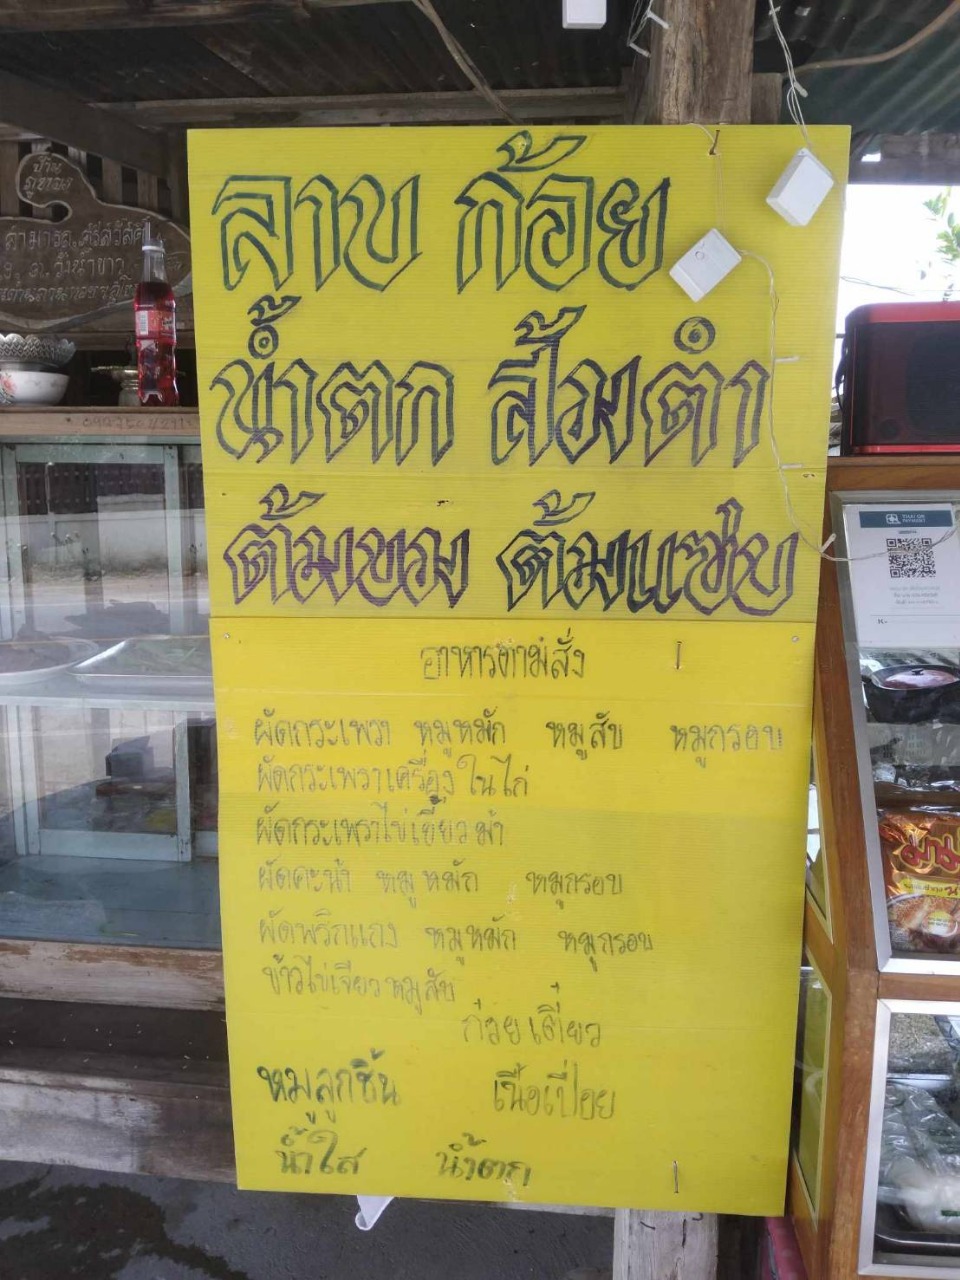 ลาบ ก้อย
น้ำตก ส้มตำ
ต้มขม ต้มแซ่บ
อาหารตามสั่ง
ผัดกระเพรา หมูหมัก หมูสับ หมูกรอบ
ผัดกระเพราเครื่องในไก่
ผัดกระเพราไข่เยี่ยวม้า
ผัดคะน้า หมูหมัก หมูกรอบ
ผัดพริกแกง หมูหมัก หมูกรอบ
ข้าวไข่เจียวหมูสับ
ก๋วยเตี๋ยว
หมูลูกชิ้น เนื้อเปื่อย
น้ำใส น้ำตก
บ้าน
THAI QR
PAYMENT
มาม่า